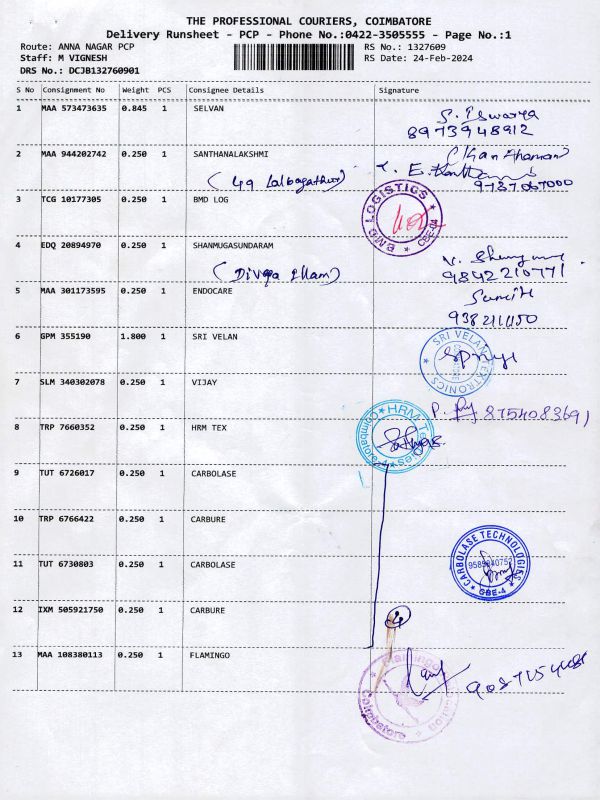 THE PROFESSIONAL COURIERS, COIMBATORE
Delivery Runsheet - PCP - Phone No.:0422-3505555 - Page No.:1
Route: ANNA NAGAR PCP
RS No.: 1327609
Staff: M VIGNESH
RS Date: 24-Feb-2024
DRS No.: DCJB132760901
S No Consignment No Weight PCS Consignee Details Signature
1 MAA 573473635 0.845 1 SELVAN
8973948912
2 MAA 944202742 0.250 1 SANTHANALAKSHMI
3 TCG 10177305 0.250 1 BMD LOG
BMD LOGISTICS CBE-04
4 EDQ 20894970 0.250 1 SHANMUGASUNDARAM
9842210771
5 MAA 301173595 0.250 1 ENDOCARE
6 GPM 355190 1.800 1 SRI VELAN
SRI VELAN TEXTRONICS
7 SLM 340302078 0.250 1 VIJAY
8754083691
8 TRP 7660352 0.250 1 HRM TEX
HRM
Coimbatore-4
9 TUT 6726017 0.250 1 CARBOLASE
10 TRP 6766422 0.250 1 CARBURE
11 TUT 6730803 0.250 1 CARBOLASE
CARBOLASE TECHNOLOGIES
CBE-4
12 IXM 505921750 0.250 1 CARBURE
4
13 MAA 108380113 0.250 1 FLAMINGO
Flamingo
Coimbatore